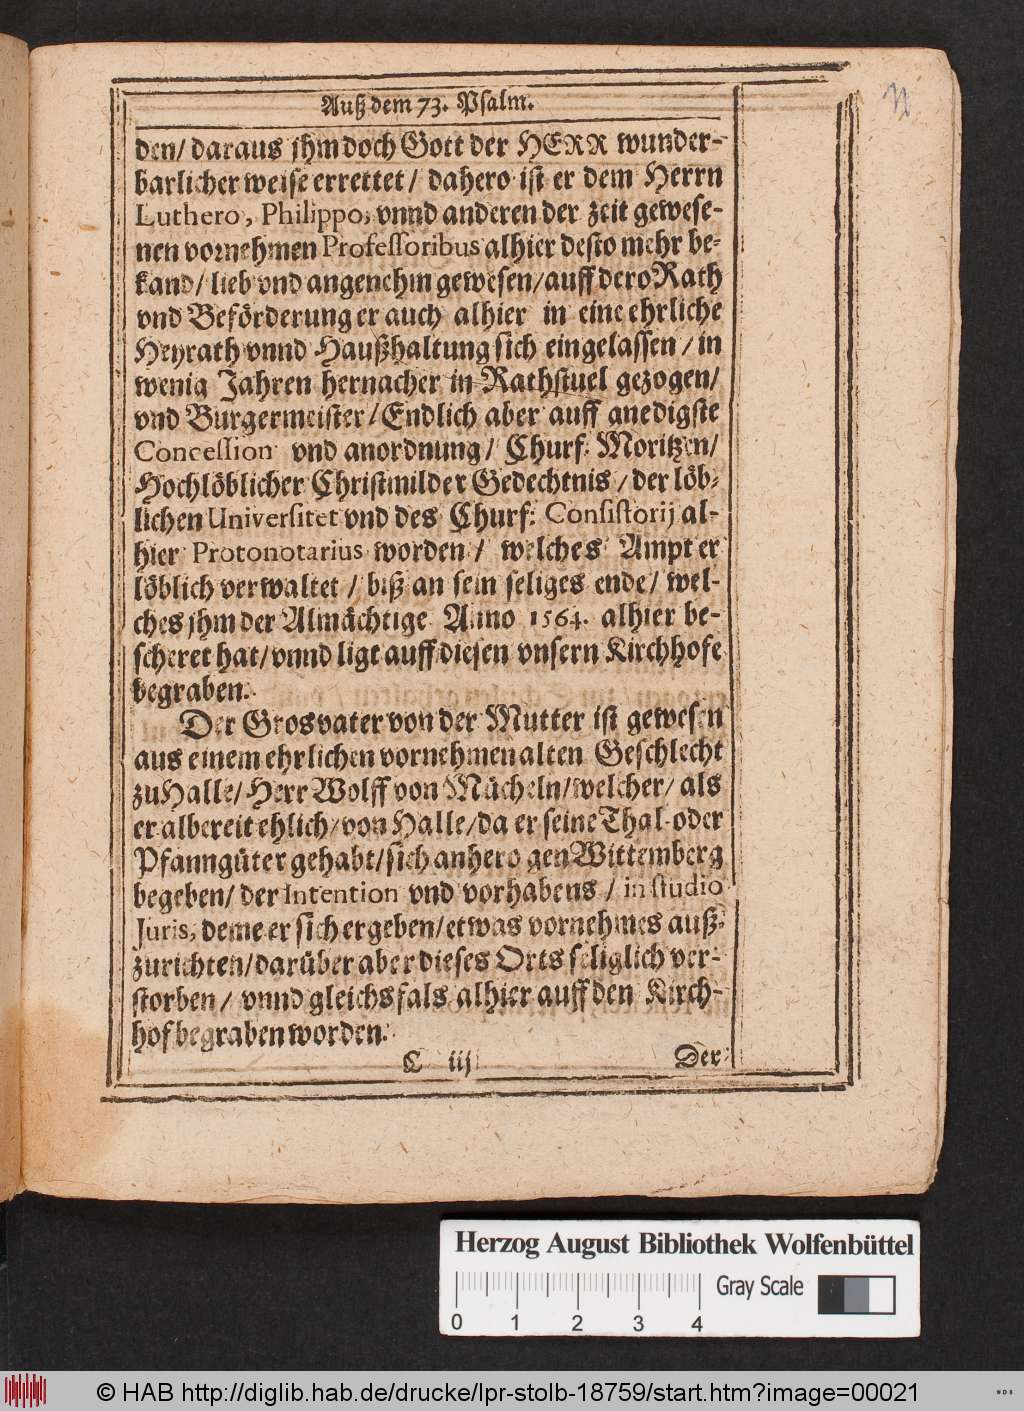 Auß dem 73. Psalm.
den/ daraus jhm doch Gott der HERR wunder-
barlicher weise errettet/ dahero ist er dem Herrn
Luthero, Philippo, vnnd anderen der zeit gewese-
nen vornehmen Professoribus alhier desto mehr be-
kand/ lieb vnd angenehm gewesen/ auff dero Rath
vnd Beförderung er auch alhier in eine ehrliche
Heyrath vnnd Haußhaltung sich eingelassen/ in
wenig Jahren hernacher in Rathstuel gezogen/
vnd Burgermeister/ Endlich aber auff gnedigste
Concession vnd anordnung/ Churf: Moritzen/
Hochlöblicher Christmilder Gedechtnis/ der löb-
lichen Universitet vnd des Churf: Consistorij al-
hier Protonotarius worden/ welches Ampt er
löblich verwaltet/ biß an sein seliges ende/ wel-
ches jhm der Almächtige Anno 1564. alhier be-
scheret hat/ vnnd ligt auff diesen vnsern Kirchhofe
begraben.
Der Grosvater von der Mutter ist gewesen
aus einem ehrlichen vornehmen alten Geschlecht
zu Halle/ Herr Wolff von Mücheln/ welcher/ als
er albereit ehlich/ von Halle/ da er seine Thal- oder
Pfanngüter gehabt/ sich anhero gen Wittemberg
begeben/ der Intention vnd vorhabens/ in studio
Juris, deme er sich ergeben/ etwas vornehmes auß-
zurichten/ darüber aber dieses Orts seliglich ver-
storben/ vnnd gleichsfals alhier auff den Kirch-
hof begraben worden.
C iij Der
Herzog August Bibliothek Wolfenbüttel
Gray Scale
0 1 2 3 4
© HAB http://diglib.hab.de/drucke/lpr-stolb-18759/start.htm?image=00021